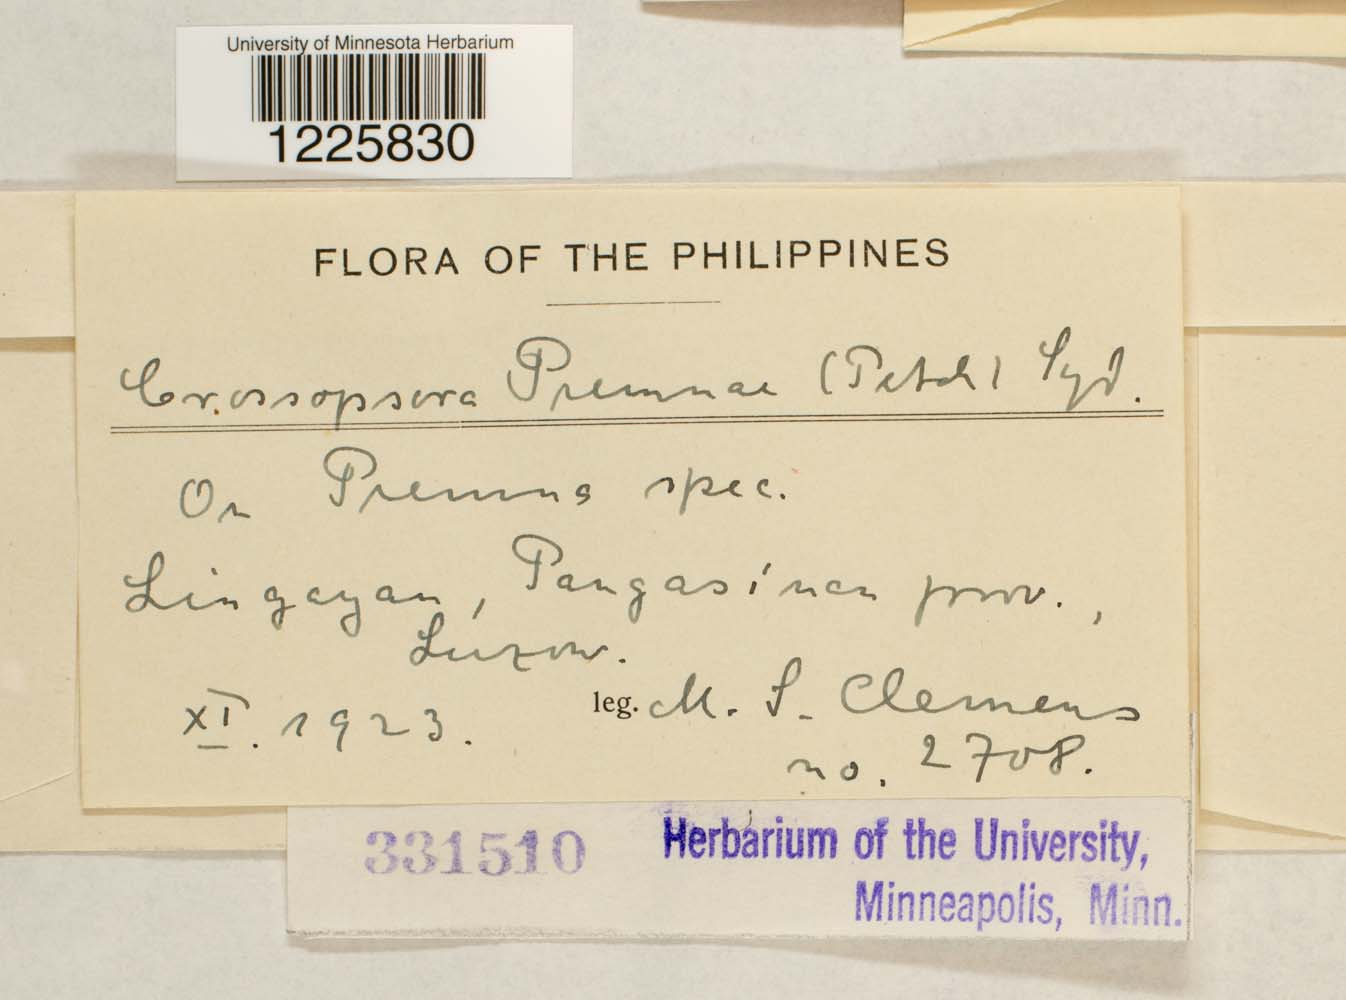 University of Minnesota Herbarium
1225830
FLORA OF THE PHILIPPINES
Crossopsora Premnae (Petch) Syd.
On Premna spec.
Lingayan, Pangasinan prov.,
Luzon.
XI. 1923.
leg. M. S. Clemens
no. 2708.
331510
Herbarium of the University,
Minneapolis, Minn.